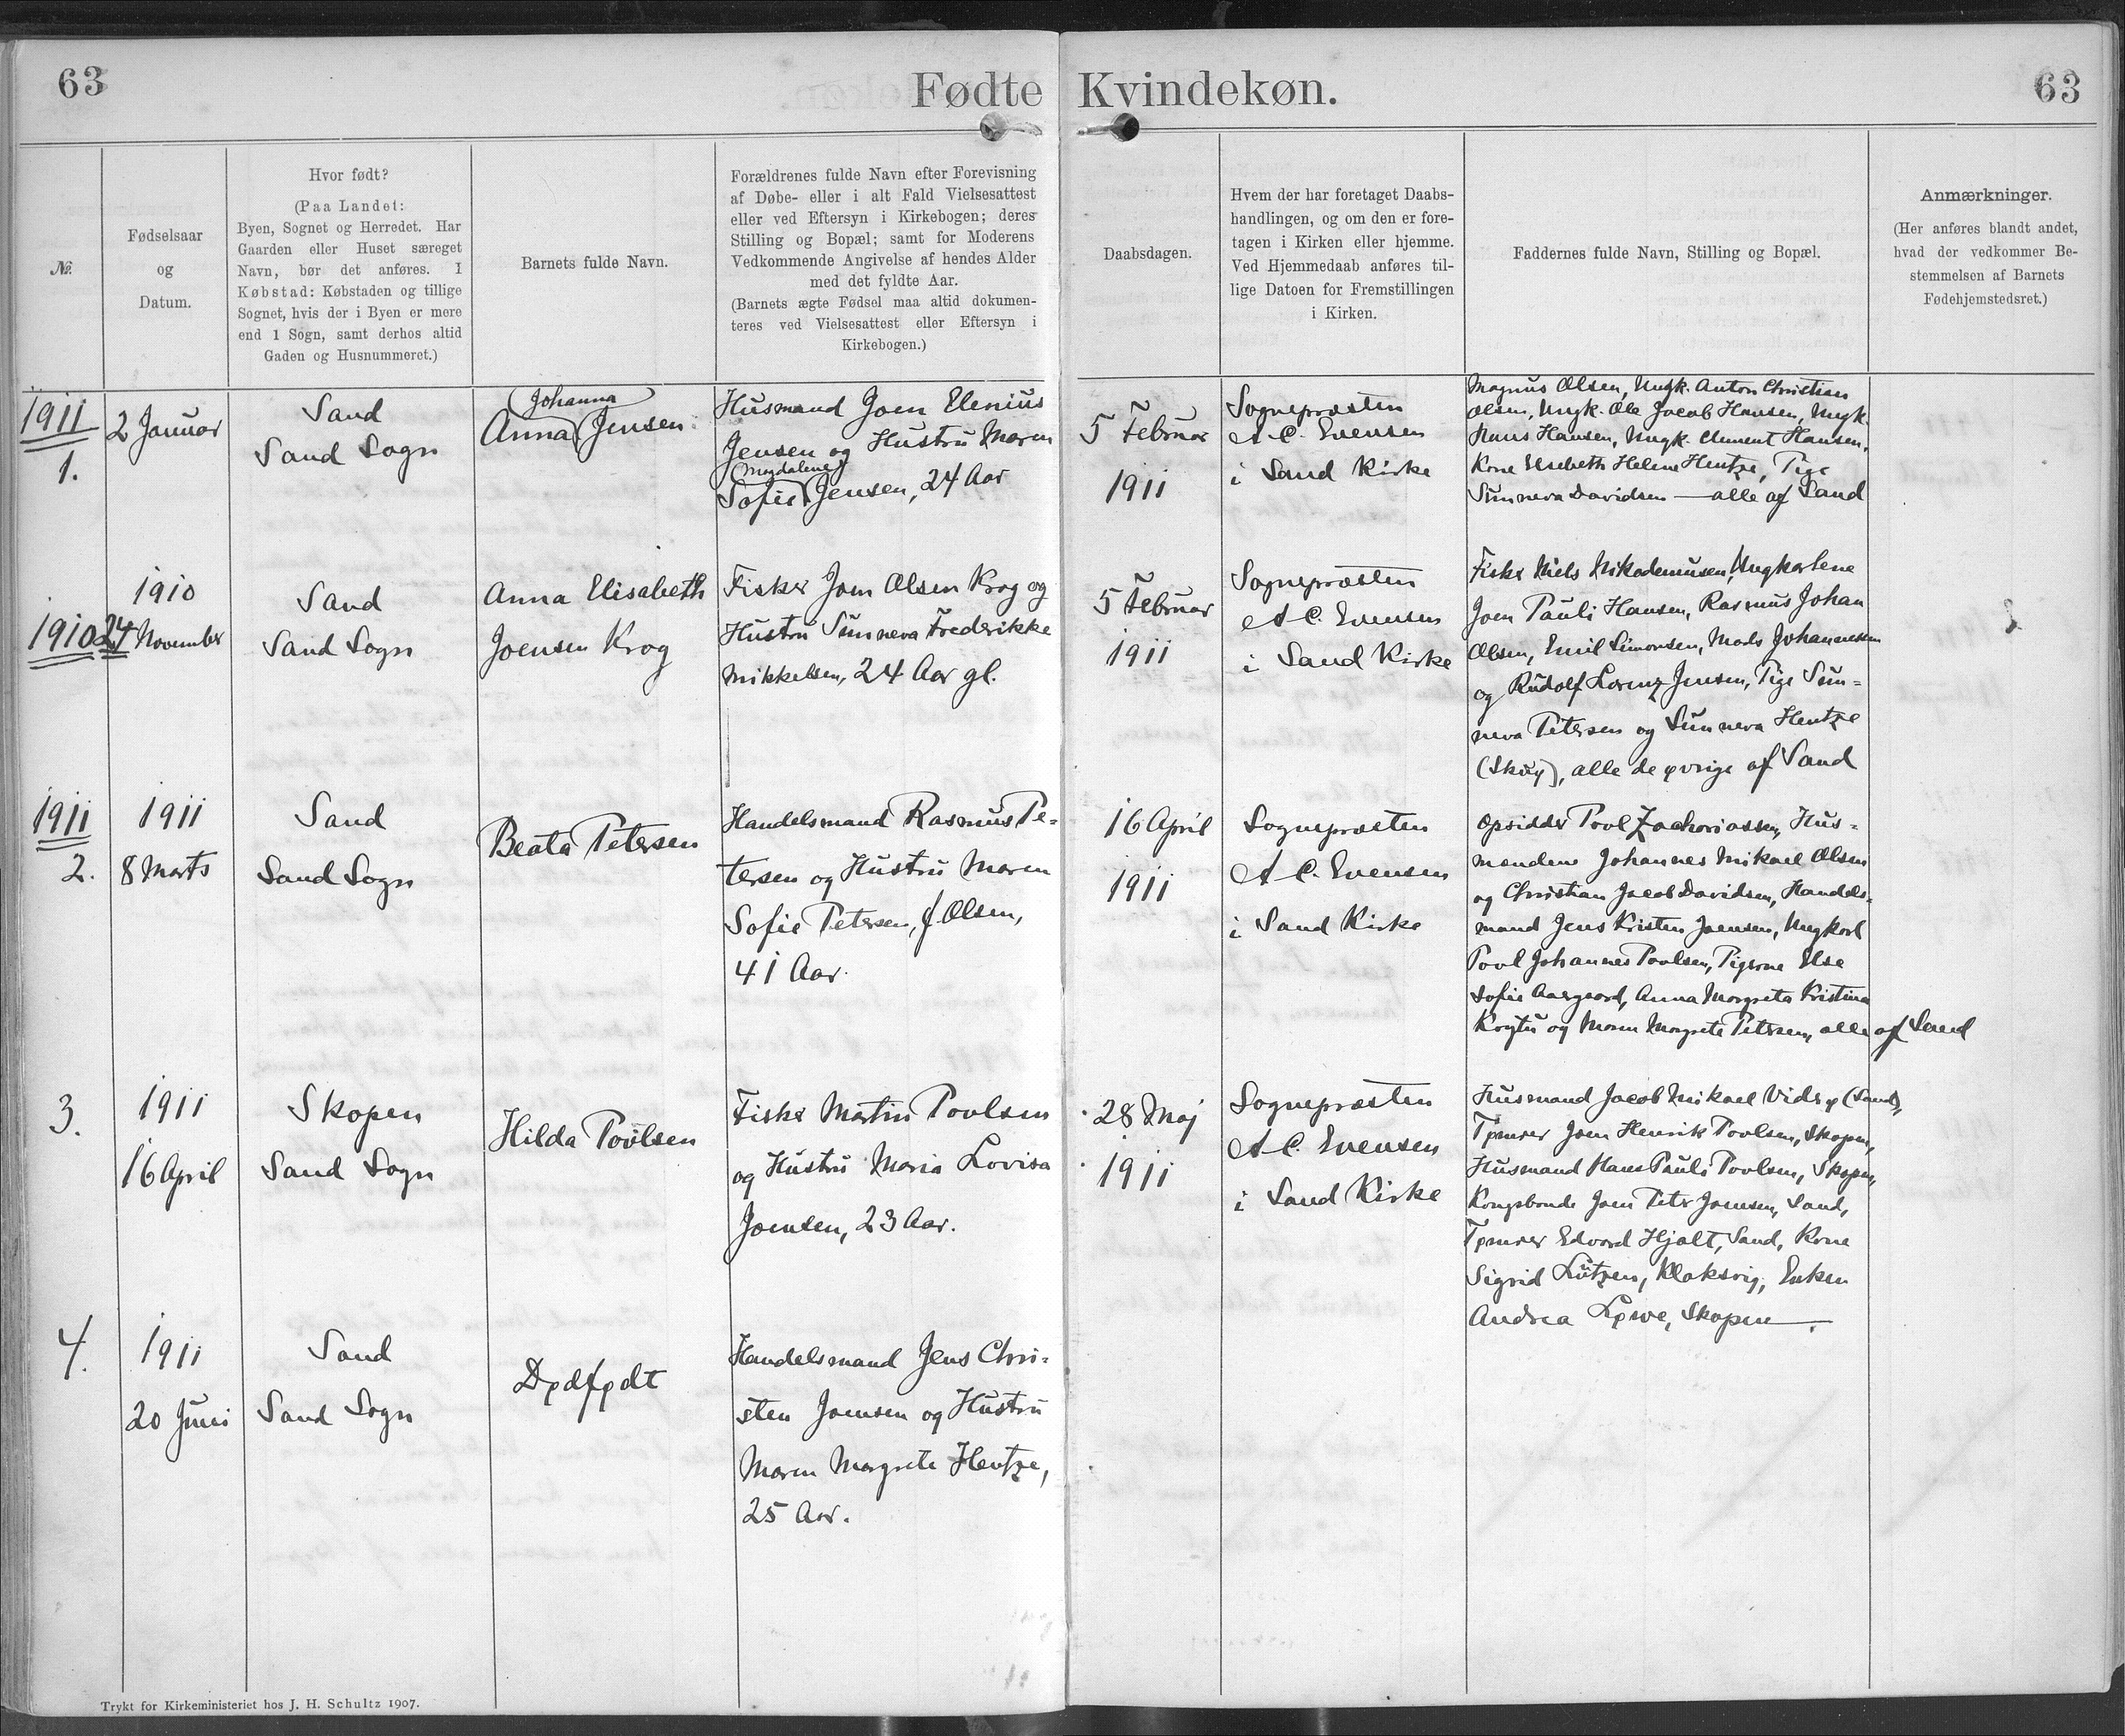 63
Fødte Kvindekøn.
63
№.
Fødselsaar
og
Datum.
Hvor født?
(Paa Landet:
Byen, Sognet og Herredet. Har
Gaarden eller Huset særeget
Navn, bør det anføres. I
Købstad: Købstaden og tillige
Sognet, hvis der i Byen er mere
end 1 Sogn, samt derhos altid
Gaden og Husnummeret.)
Barnets fulde Navn.
Forældrenes fulde Navn efter Forevisning
af Døbe- eller i alt Fald Vielsesattest
eller ved Eftersyn i Kirkebogen; deres
Stilling og Bopæl; samt for Moderens
Vedkommende Angivelse af hendes Alder
med det fyldte Aar.
(Barnets ægte Fødsel maa altid dokumen-
teres ved Vielsesattest eller Eftersyn i
Kirkebogen.)
Daabsdagen.
Hvem der har foretaget Daabs-
handlingen, og om den er fore-
tagen i Kirken eller hjemme.
Ved Hjemmedaab anføres til-
lige Datoen for Fremstillingen
i Kirken.
Faddernes fulde Navn, Stilling og Bopæl.
Anmærkninger.
(Her anføres blandt andet,
hvad der vedkommer Be-
stemmelsen af Barnets
Fødehjemstedsret.)
1911
1.
2 Januar
Sand
Sand Sogn
Johanna
Anna Jensen
Husmand Joen Elenius
Jensen og Hustru Maren
Magdalene
Sofie Jensen, 24 Aar
5 Februar
1911
Sognepræsten
A. C. Evensen
i Sand Kirke
Magnus Olsen, Ungk. Anton Christian
Olsen, Ungk. Ole Jacob Hansen, Ungk.
Hans Hansen, Ungk. Clement Hansen,
Kone Elsebeth Helene Hentze, Pige
Sunneva Davidsen — alle af Sand
1910
1910
24 November
Sand
Sand Sogn
Anna Elisabeth
Joensen Krog
Fisker Joen Olsen Krog og
Hustru Sunneva Frederikke
Mikkelsen, 24 Aar gl.
5 Februar
1911
Sognepræsten
A. C. Evensen
i Sand Kirke
Fisker Niels Nikodemusen, Ungkarlene
Joen Pauli Hansen, Rasmus Johan
Olsen, Emil Simonsen, Mads Johannesen
og Rudolf Lorenz Jensen, Pige Sun-
neva Petersen og Sunneva Hentze
(Skuø), alle de øvrige af Sand
1911
2.
1911
8 Marts
Sand
Sand Sogn
Beata Petersen
Handelsmand Rasmus Pe-
tersen og Hustru Maren
Sofie Petersen, f. Olsen,
41 Aar.
16 April
1911
Sognepræsten
A. C. Evensen
i Sand Kirke
Opsidder Povl Zachariassen, Hus-
mændene Johannes Mikael Olsen
og Christian Jacob Davidsen, Handels-
mand Jens Kristen Joensen, Ungkarl
Povl Johannes Poulsen, Pigerne Else
Sofie Aargaard, Anna Margreta Kristina
og Maren Margrete Petersen, alle af Sand
3.
1911
16 April
Skopen
Sand Sogn
Hilda Poulsen
Fisker Martin Poulsen
og Hustru Maria Lovisa
Joensen, 23 Aar.
28 Maj
1911
Sognepræsten
A. C. Evensen
i Sand Kirke
Husmand Jacob Mikael Viderø (Sand),
Tømrer Joen Henrik Poulsen, Skopen,
Husmand Hans Pauli Poulsen, Skopen,
Kongsbonde Joen Peter Joensen, Sand,
Tømrer Edvard Hjalt, Sand, Kone
Sigrid Lützen, Klaksvig, Enken
Andrea Løwe, Skopen.
4.
1911
20 Juni
Sand
Sand Sogn
Dødfødt
Handelsmand Jens Chri-
sten Joensen og Hustru
Maren Margrete Hentze,
25 Aar.
Trykt for Kirkeministeriet hos J. H. Schultz 1907.